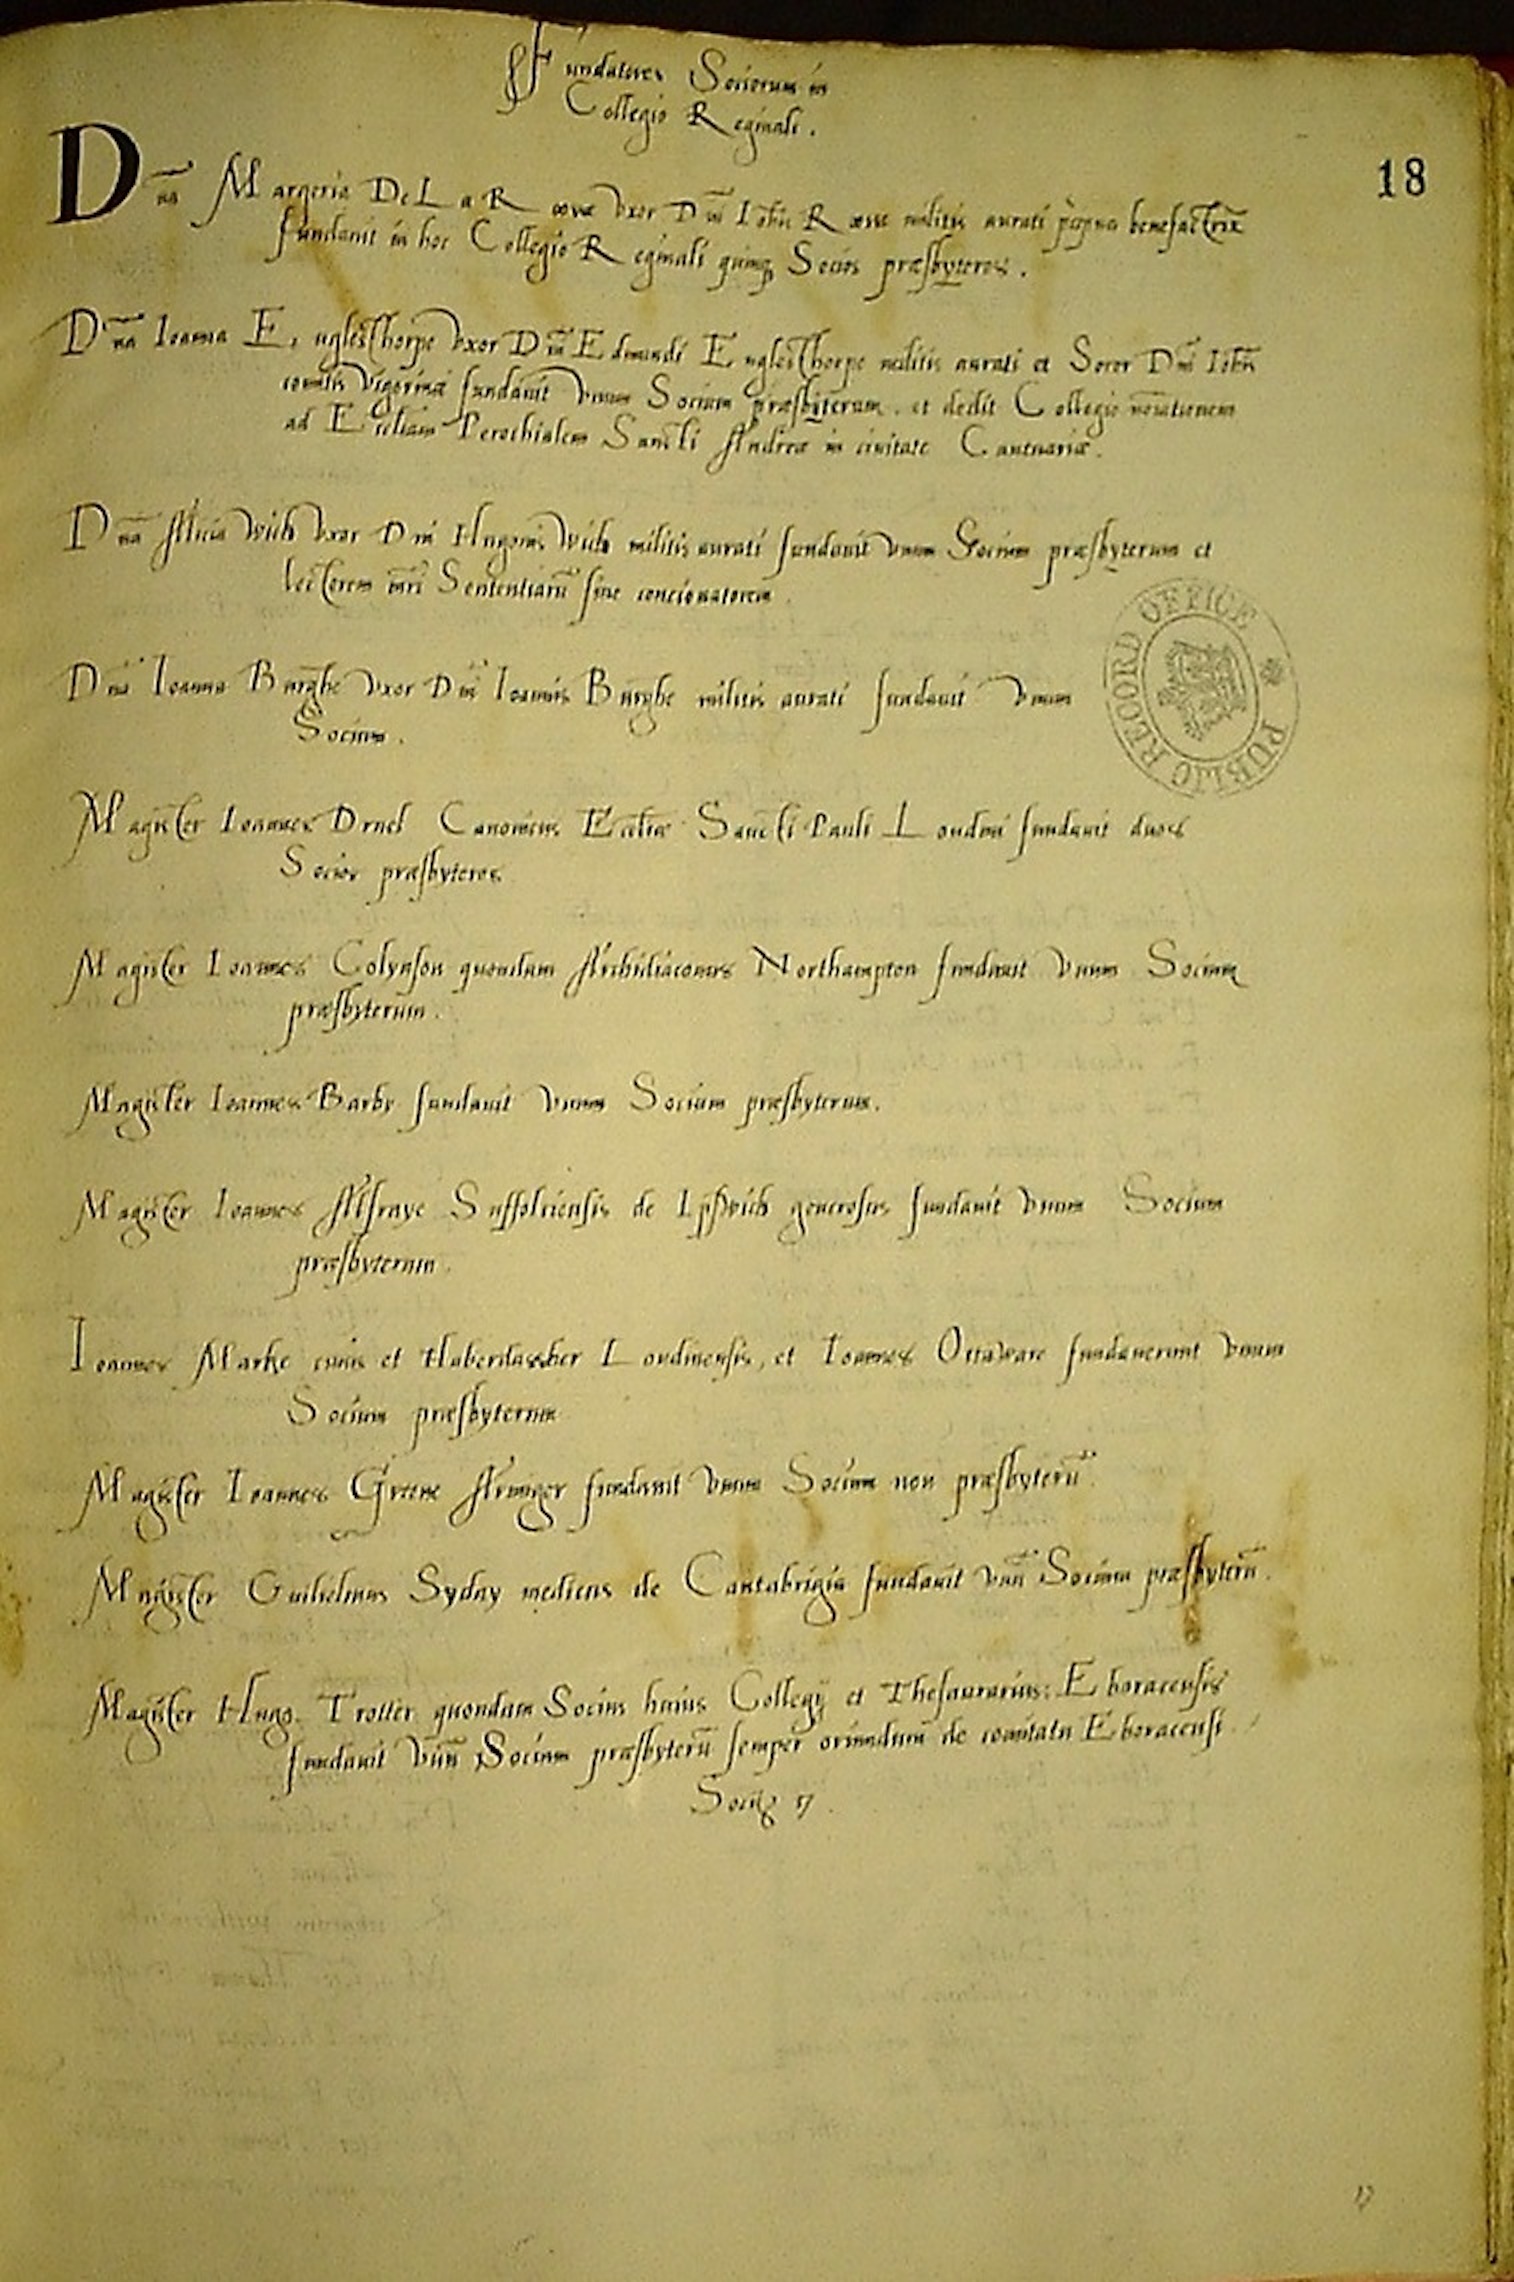 Fundatores Sociorum in
Collegio Reginali.
18
Dna Margeria De La Roose uxor Dni Iohis Roose militis aurati benefactrix
fundauit in hoc Collegio Reginali quinq Socios præsbyteros.
Dna Ioanna Englesthorpe vxor Dni Edmundi Englesthorpe militis aurati et Socer Dni Iohis
comitis Vigorniæ fundauit vnum Socium præsbyterum, et dedit Collegio
ad Eccliam Perochialem Sancti Andreæ in ciuitate Cantuariæ.
Dna Alicia Wich vxor Dni Hugonis Wich militis aurati fundauit vnum Socium præsbyterum et
lectorem mri Sententiarū siue concionatorem.
Dna Ioanna Burghe vxor Dni Ioannis Burghe militis aurati fundauit vnum
Socium.
Magister Ioannes Druel Canonicus Eccliæ Sancti Pauli Londini fundauit duos
Socios præsbyteros.
Magister Ioannes Colynson quondam Archidiaconus Northampton fundauit vnum Socium
præsbyterum.
Magister Ioannes Barby fundauit vnum Socium præsbyterum.
Magister Ioannes Alfraye Suffolciensis de Ipswich generosus fundauit vnum Socium
præsbyterum.
Ioannes Marke ciuis et Haberdassher Londinensis, et Ioannes Ottaware fundauerunt vnum
Socium præsbyterum
Magister Ioannes Greene Armiger fundauit vnum Socium non præsbyterū.
Magister Guilielmus Syday medicus de Cantabrigia fundauit vnū Socium præsbyterū.
Magister Hugo Trotter quondam Socius huius Collegij et Thesaurarius Eboracensis
fundauit vnū Socium præsbyterū semper oriundum de comitatu Eboracensi.
Socij 17.
PUBLIC RECORD OFFICE
17